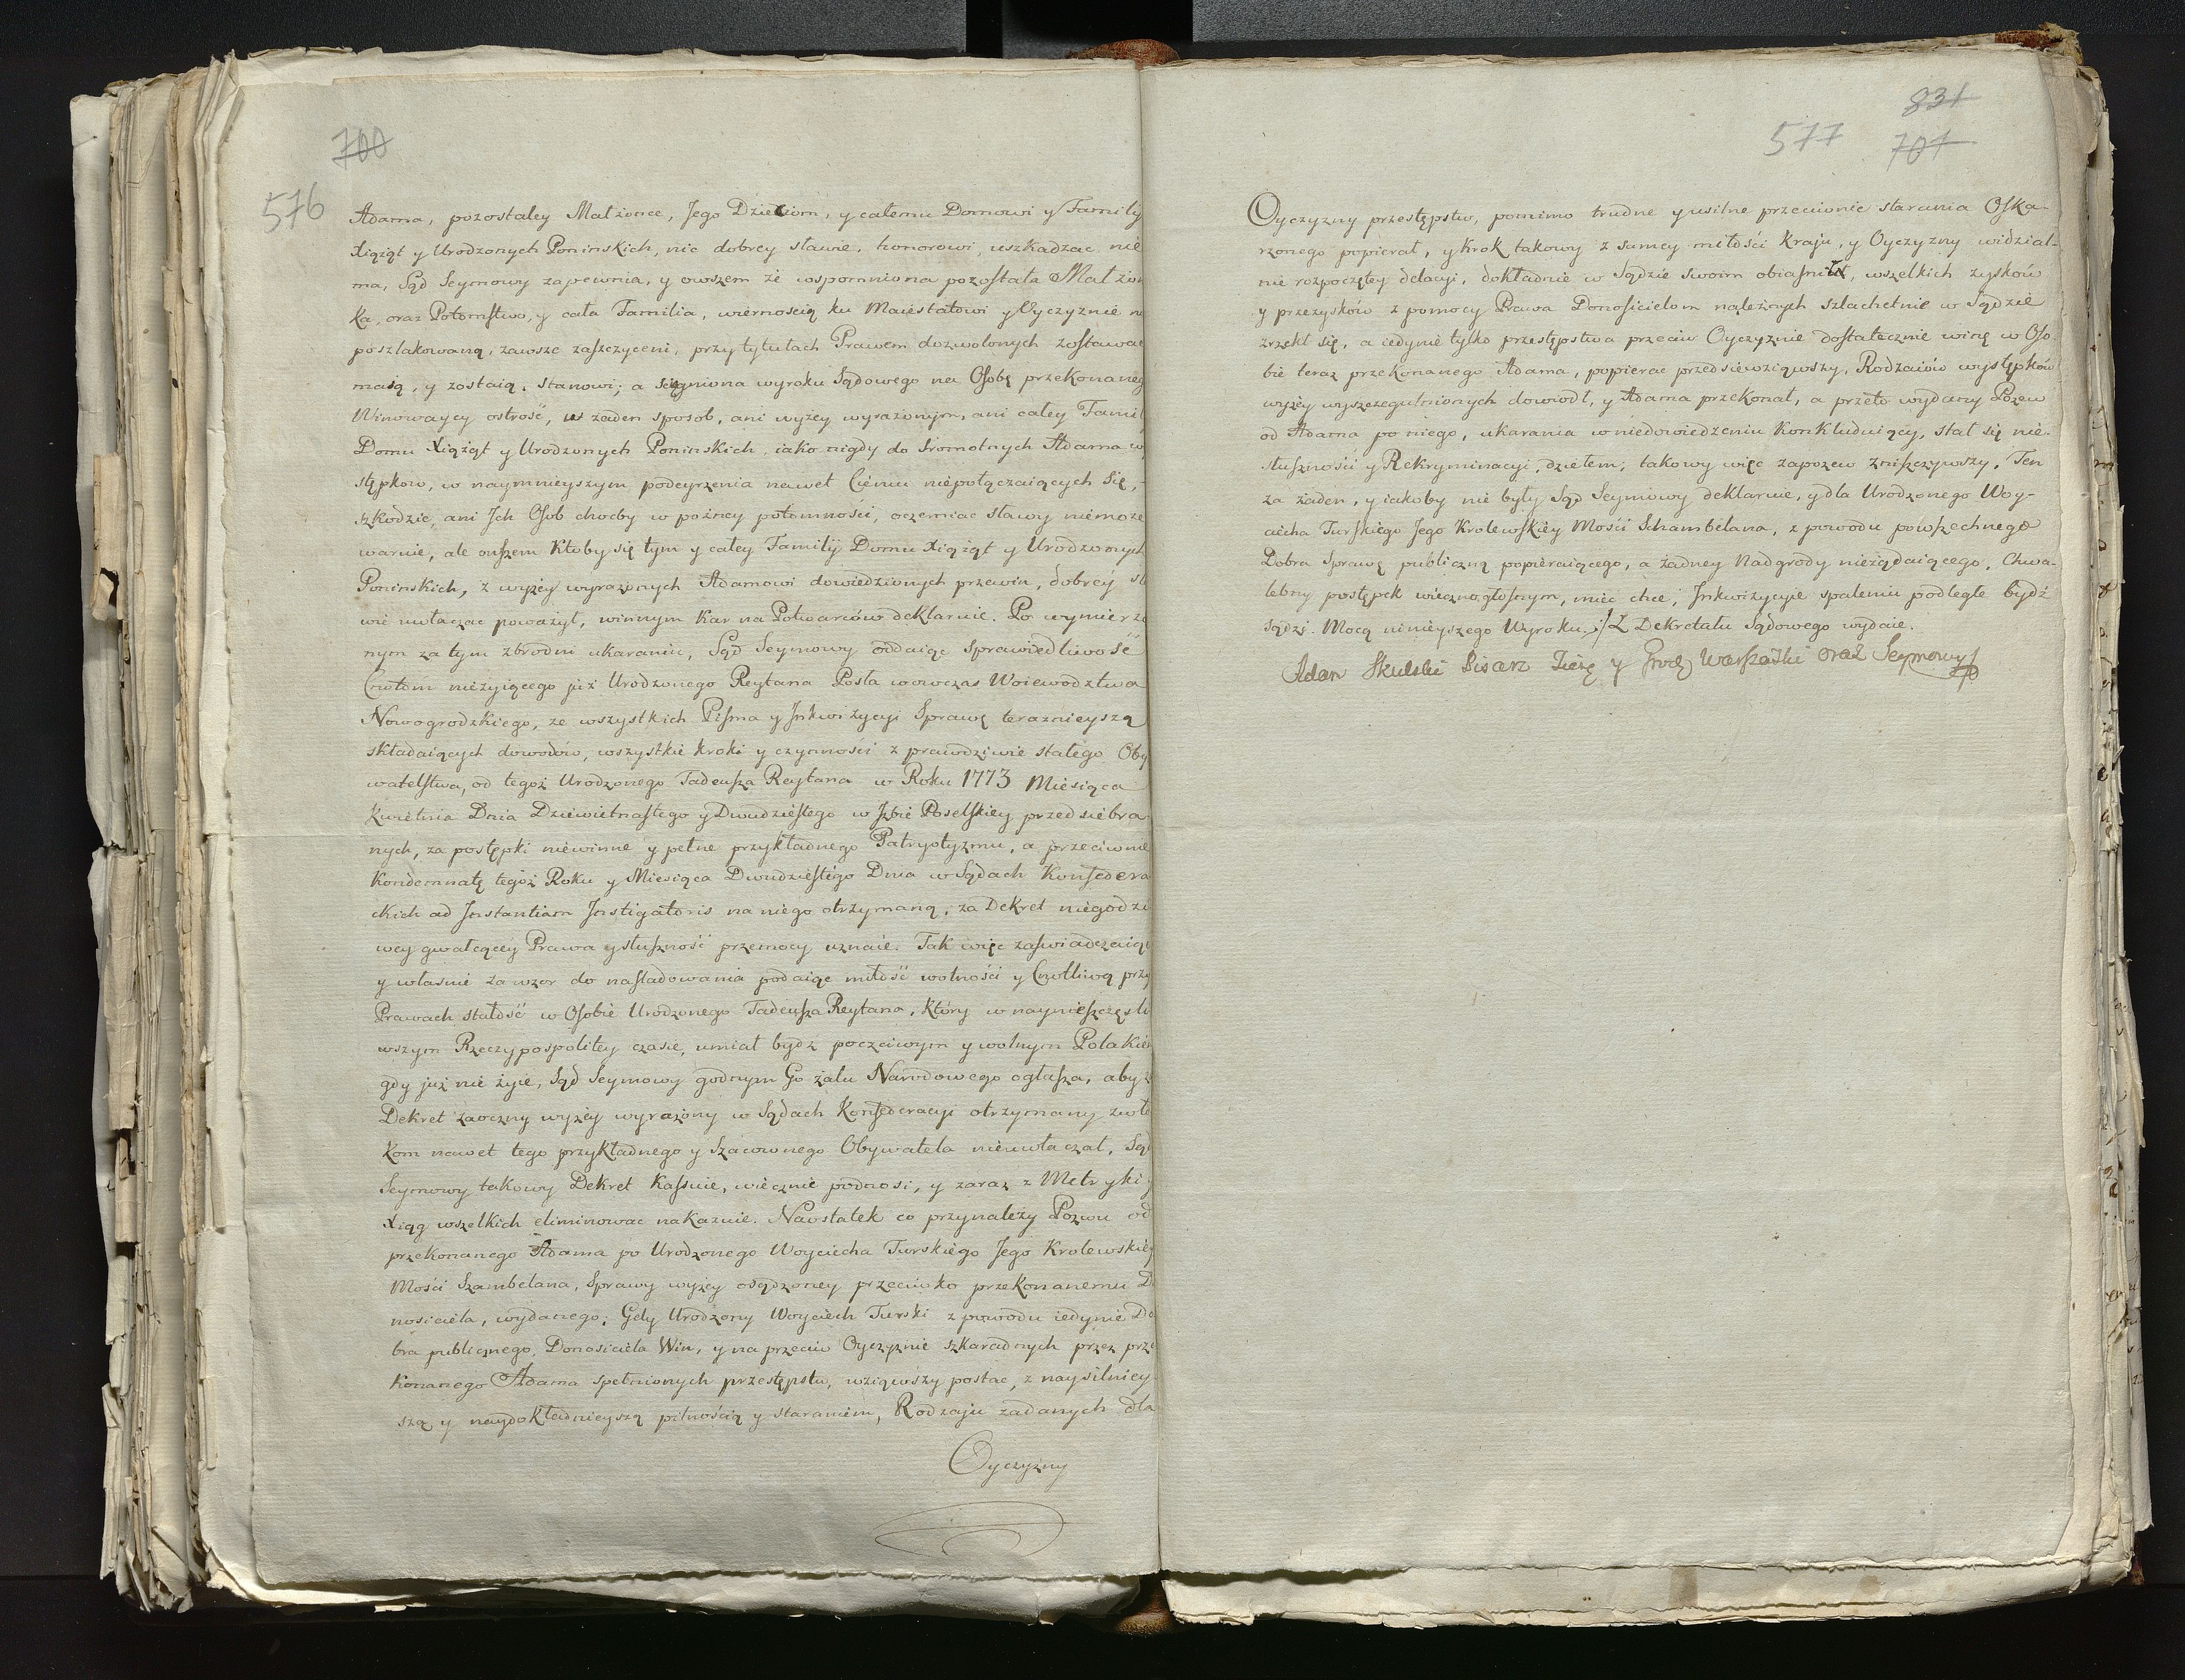 700
576
Adama, pozostałey Małżonce, Jego Dzieciom, y całemu Domowi y Familÿ
Xiążąt y Urodzonych Ponińskich, nic dobrey sławie, honorowi, uszkadzac nie
ma, Sąd Seymowy zapewnia, y owszem że wspomniona pozostała Małżon
ka, oraz Potomstwo, y cała Familia, wiernością ku Maiestatowi y Oyczyznie n
poszlakowaną, zawsze zaszczyceni, przy tytułach Prawem dozwolonych zostawać
maią, y zostaią, stanowi; a ściągniona wyroku Sądowego na Osobę przekonaneg
Winowaycy ostrość, w żaden sposob, ani wyżey wyrażonym, ani całey Famil
Domu Xiążąt y Urodzonych Ponińskich, iako nigdy do sromotnych Adama w
stępkow, w naymnieyszym podeyrzenia nawet Cieniu niepołączaiących się,
szkodzic, ani Ich Osob choćby w poźney potomności, oczerniac sławy niemoże
warnie, ale owszem Ktoby się tym y całey Familÿ Domu Xiążąt y Urodzonych
Ponińskich, z wyżey wyrażonych Adamowi dowiedzionych przewin, dobrey sł
wie uwłaczac poważył, winnym Kar na Potwarców deklaruie. Po wymierzo
nym za tym zbrodni ukaraniu, Sąd Seymowy oddaiąc sprawiedliwość
Cnotom nieżyiącego już Urodzonego Reytana Posła wowczas Woiewodztwa
Nowogrodzkiego, ze wszystkich Pisma y Inkwizycyi Sprawę teraznieyszą
składaiących dowodów, wszystkie kroki y czynności z prawdziwie stałego Oby
watelstwa, od tegoż Urodzonego Tadeusza Reytana w Roku 1773 Miesiąca
Kwietnia Dnia Dziewietnastego y Dwudziestego w Izbie Poselskiey przedsiebra
nych, za postępki niewinne y pełne przykładnego Patryotyzmu, a przeciwnie
Kondemnatę tegoż Roku y Miesiąca Dwudziestego Dnia w Sądach Konfedera
ckich ad Instantiam Instigatoris na niego otrzymaną, za Dekret niegodzi
wey gwałcącey Prawa y słuszność przemocy uznaie. Tak więc zaświadczaiąc
y właśnie za wzor do nasladowania podaiąc miłość wolności y Cnotliwą przy
Prawach stałość w Osobie Urodzonego Tadeusza Reytana, który w naynieszczęśli
wszym Rzeczypospolitey czasie, umiał bydź poczciwym y wolnym Polakiem
gdy już nie żyie, Sąd Seymowy godnym Go żalu Narodowego ogłasza, aby z
Dekret zaoczny wyżey wyrażony w Sądach Konfederacyi otrzymany zwło
kom nawet tego przykładnego y Szacownego Obywatela nieuwłaczał, Sąd
Seymowy takowy Dekret Kassuie, wiecznie podnosi, y zaraz z Metryki y
Xiąg wszelkich eliminowac nakazuie. Naostatek co przynależy Pozwu od
przekonanego Adama po Urodzonego Woyciecha Turskiego Jego Krolewskiey
Mości Szambelana, Sprawy wyżey osądzoney przeciwko przekonanemu D
nosiciela, wydanego; Gdy Urodzony Woyciech Turski z powodu iedynie Do
bra publicznego, Donosiciela Win, y na przeciw Oyczyznie szkaradnych przez prze
konanego Adama spełnionych przestępstw, wziąwszy postac, z naysilniey
szą y naydokładnieyszą pilnością y staraniem, Rodzaju zadanych dla
Oyczyzny
831
577 701
Oyczyzny przestępstw, pomimo trudne y usilne przeciwnie starania Oska-
rzonego popierał, y Krok takowy z samey miłości Kraju, y Oyczyzny widzial-
nie rozpoczętey delacyi, dokładnie w Sądzie swoim obiasnił, wszelkich zysków
y przezysków z pomocy Prawa Donosicielom należnych szlachetnie w Sądzie
zrzekł się, a iedynie tylko przestępstwa przeciw Oyczyznie dostatecznie winę w Oso-
bie teraz przekonanego Adama, popierac przedsiewziąwszy, Rodzaiów występków
wyżey wyszczegulnionych dowiodł, y Adama przekonał, a przeto wydany Pozew
od Adama po niego, ukarania w niedowiedzeniu Konkluduiący, stał się nie-
słuszności y Rekryminacyi, dziełem; takowy więc zapozew zniszczywszy, Ten
za żaden, y iakoby nie były Sąd Seymowy deklaruie, y dla Urodzonego Woy-
ciecha Turskiego Jego Krolewskiey Mości Schambelana, z powodu powszechnego
Dobra Sprawę publiczną popieraiącego, a żadney Nadgrody nieżądaiącego, Chwa-
lebny postępek wiecznogłosnym, miec chce, Inkwizycyie spaleniu podległe bydź
sądzi. Mocą ninieyszego Wyroku. Z Dekretału Sądowego wydaie.
Adam Skulski Pisarz Ziemę y Grodz Warszaski oraz Seymowy